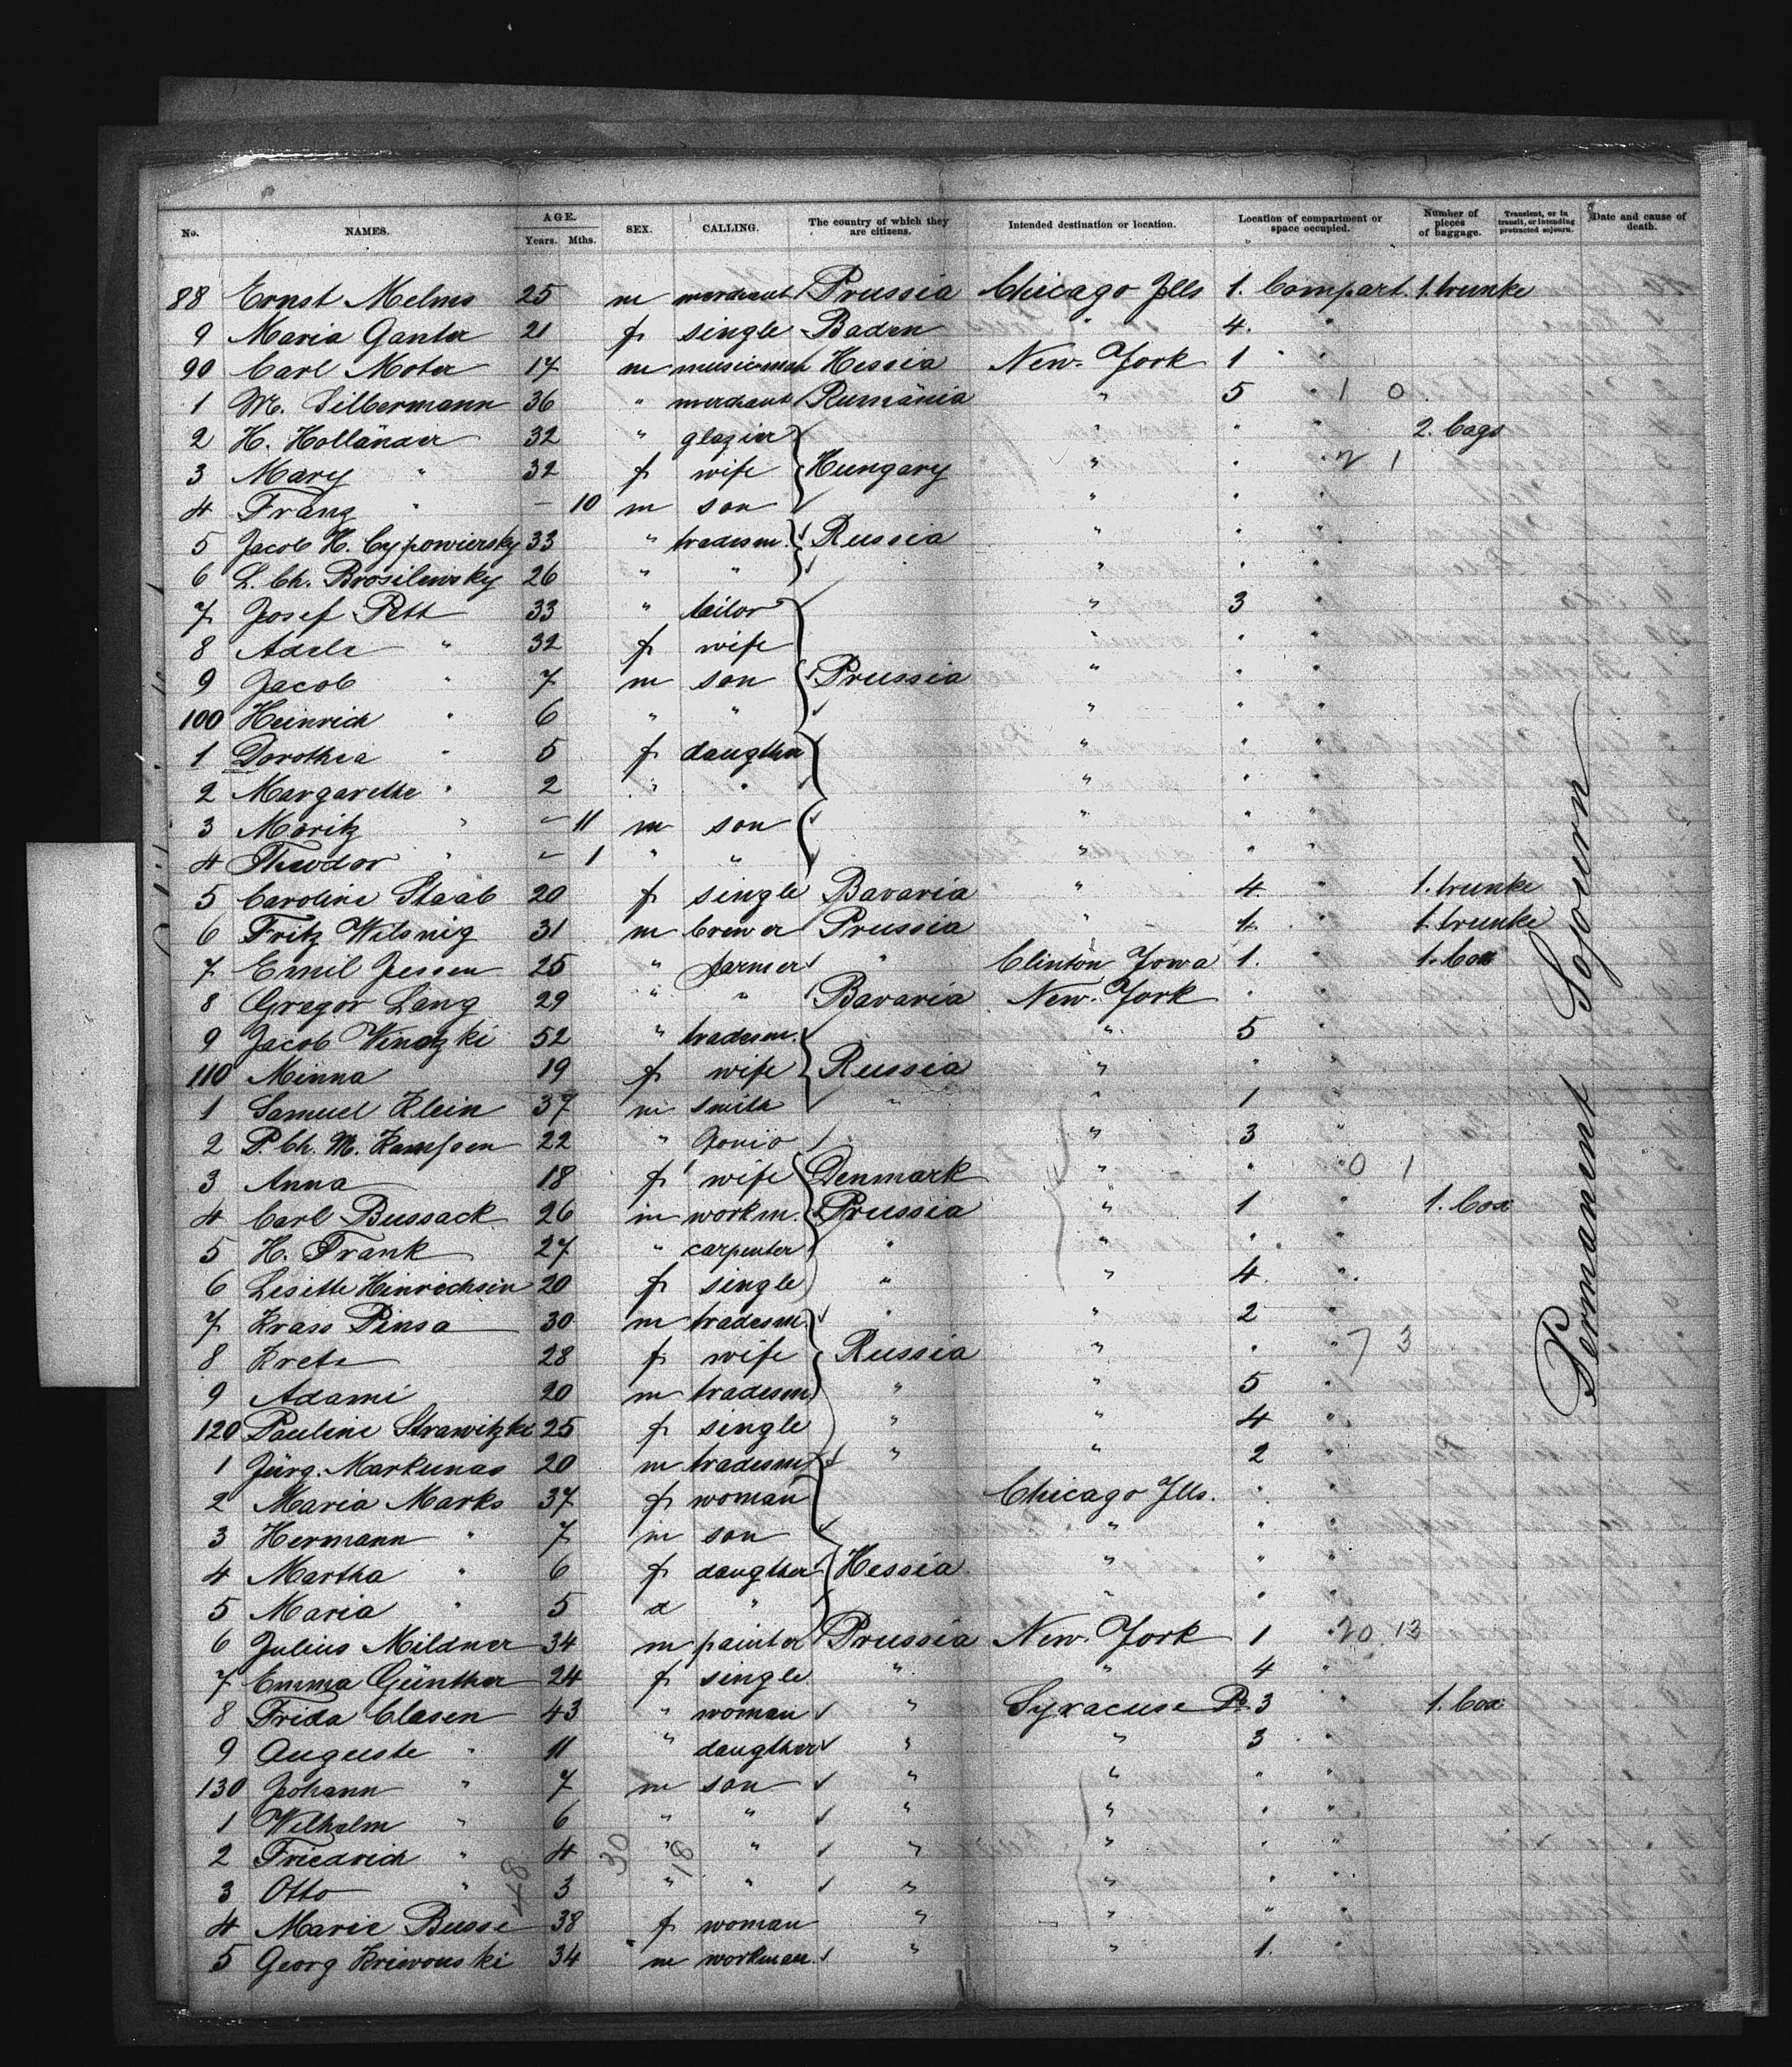 No. NAMES. AGE. Years. Mths. SEX. CALLING. The country of which they are citizens. Intended destination or location. Location of compartment or space occupied. Number of pieces of baggage. Transient, or in transit, or intending protracted sojourn. Date and cause of death.
88 Ernst Melms 25 m merchant Prussia Chicago Ills 1. Compart. 1. trunke
9 Maria Ganter 21 f single Baden " 4. "
90 Carl Moter 17 m Hessia New-York 1 " "
1 M. Silbermann 36 " merchant Rumänia " 5 " 1 0
2 H. Holländer 32 " glazier " " " 2. bags
3 Mary " 32 f wife Hungary " " " 2 1
4 Franz " – 10 m son " " "
5 Jacob H. Cypowiersky 33 " tradesm. Russia " " "
6 L. Ch. Brosilewsky 26 " " " " "
7 Josef Pett 33 " tailor " 3 "
8 Adele " 32 f wife " " "
9 Jacob " 7 m son Prussia " " "
100 Heinrich " 6 " " " " "
1 Dorothea " 5 f daugther " " "
2 Margarethe " 2 " " " " "
3 Moritz " – 11 m son " " "
4 Theodor " – 1 " " " " "
5 Caroline Staab 20 f single Bavaria " 4. " 1. trunke
6 Fritz Wilsnig 31 m brewer Prussia " 1. " 1. trunke
7 Emil Jessen 25 " farmer " Clinton Jowa 1. " 1. box
8 Gregor Lang 29 " " Bavaria New-York " "
9 Jacob Winozki 52 " tradesm. " 5 "
110 Minna 19 f wife Russia " " "
1 Samuel Klein 37 m smith " " 1 "
2 P. Ch. M. 22 " " 3 "
3 Anna 18 f wife Denmark " " " 0 1
4 Carl Bussack 26 m workm. Prussia " 1 " 1. box
5 H. Frank 27 " carpenter " " " "
6 Lisette Hinrichsen 20 f single " " 4. "
7 Krass Pinsa 30 m tradesm. " " 2 "
8 Krete 28 f wife Russia " " " 7 3
9 Adami 20 m tradesm. " " 5 "
120 Pauline Strawitzki 25 f single " " 4 "
1 Jürg. Markunas 20 m tradesm. " " 2 "
2 Maria Marks 37 f woman Chicago Jlls. " "
3 Hermann " 7 m son " " "
4 Martha " 6 f daugther Hessia " " "
5 Maria " 5 " " " "
6 Julius Mildner 34 m painter Prussia New-York 1 " 20 13
7 Emma Günther 24 f single " " 4 "
8 Frida Clasen 43 " woman " Syracuse 3 " 1. box
9 Auguste " 11 " daugther " " 3 "
130 Johann " 7 m son " " " "
1 Wilhelm " 6 " " " " " "
2 Friedrich " 4 " " " " " "
3 Otto " 3 " " " " " "
4 Marie Busse 38 f woman " " " "
5 Georg Kriwouski 34 m workman. " " 1. "
48 30 18
Permanent Sojourn